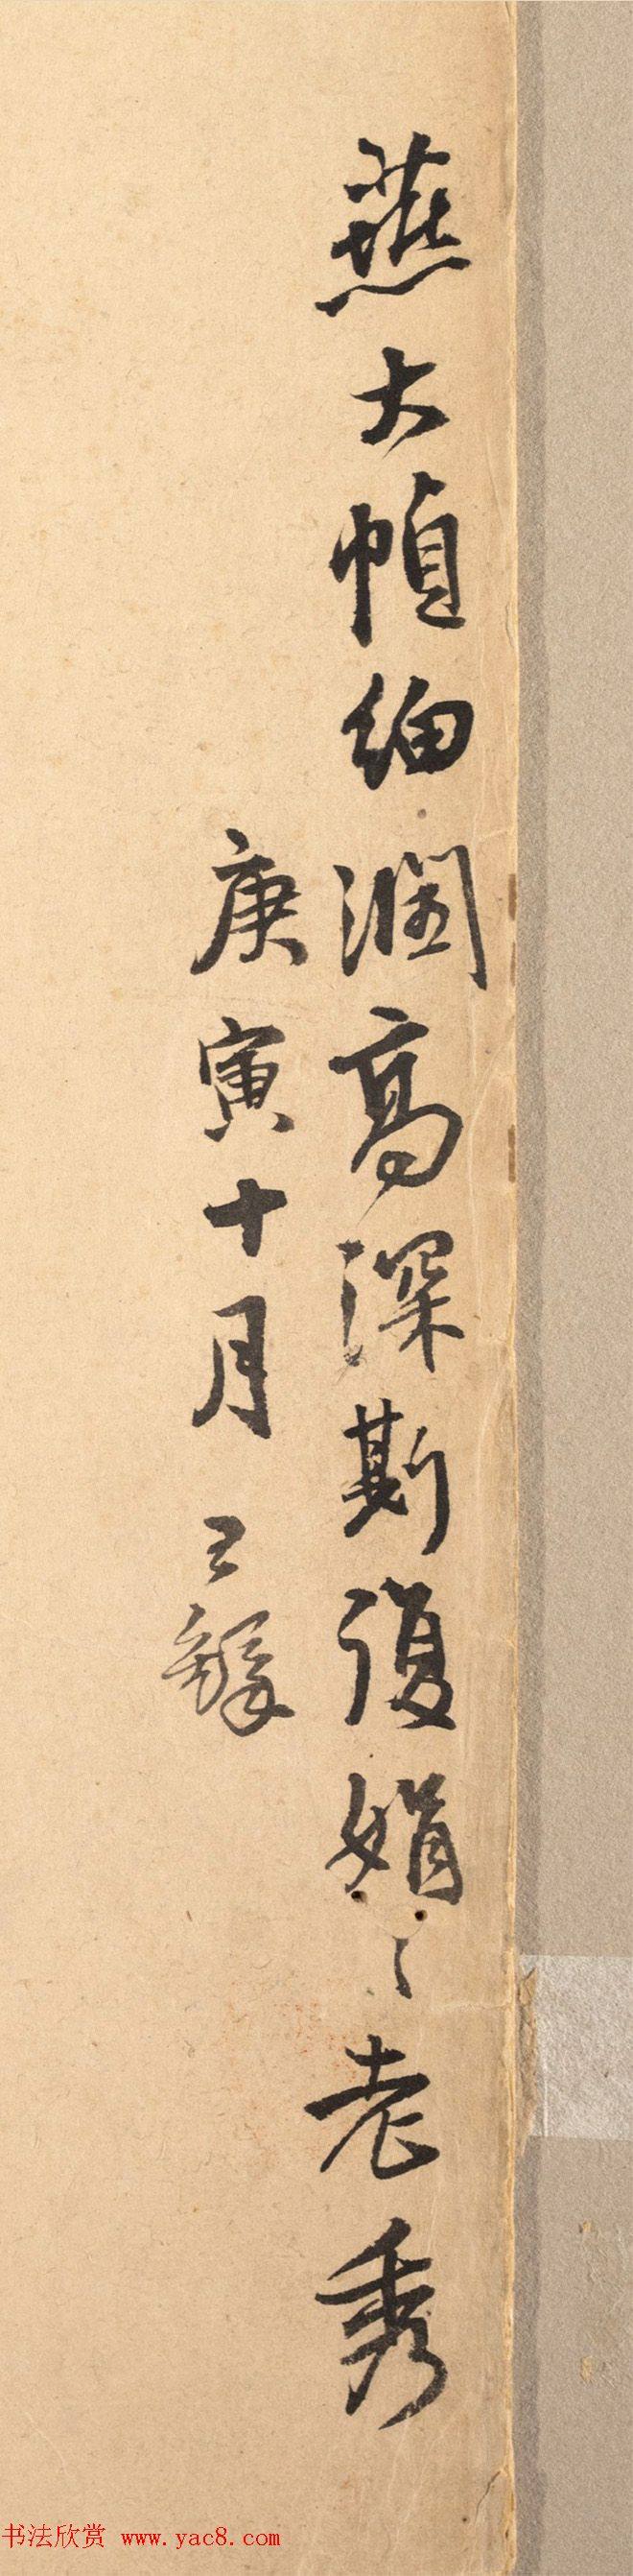 燕大幀細潤高深斯復娟〻老秀
庚寅十月王鐸
书法欣赏 www.yac8.com